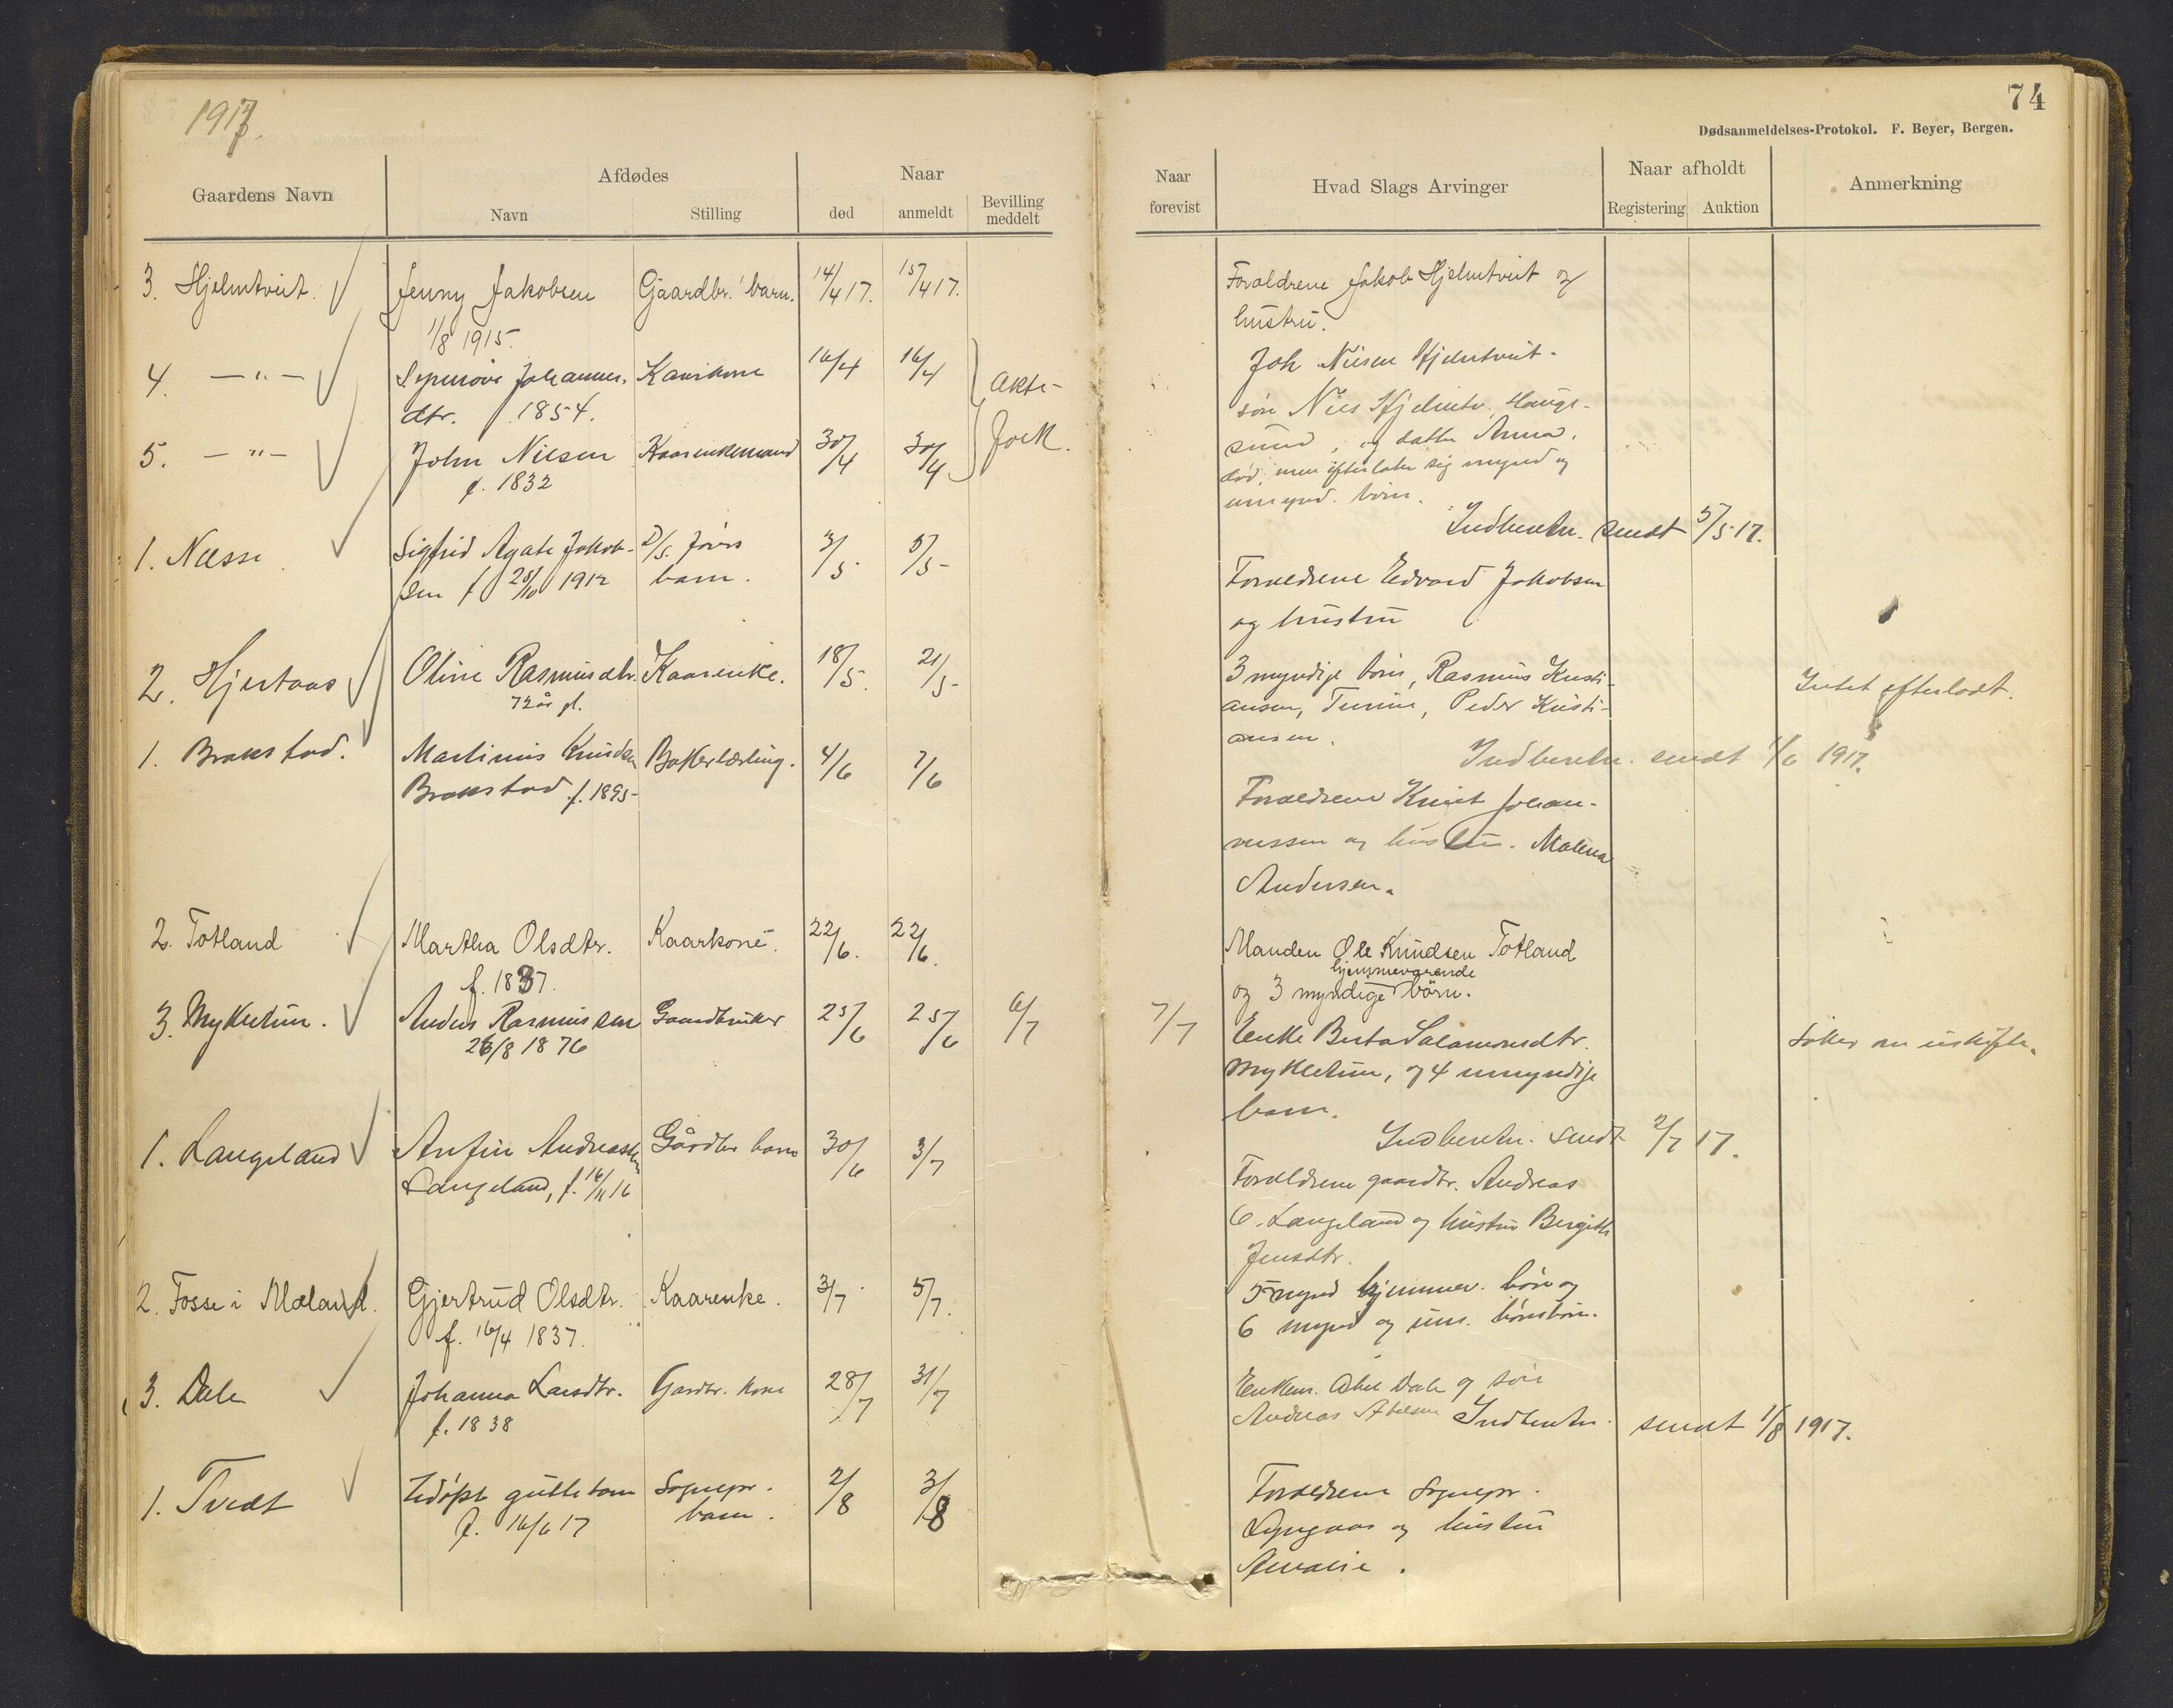 1917.
74
Dødsanmeldelses-Protokol. F. Beyer, Bergen.
Gaardens Navn
Afdødes
Navn
Stilling
Naar
død
anmeldt
Bevilling meddelt
Naar forevist
Hvad Slags Arvinger
Naar afholdt
Registering
Auktion
Anmerkning
3. Hjelmtveit. Jenny Jakobsen Gaardbr. barn. 14/4 17. 15/4 17. Forældrene Jakob Hjelmtveit og
1/8 1915. hustru.
4. — " — Johannes- 16/4 16/4 Joh Nilsen Hjelmtveit.
dtr. f. 1854. søn Nils Hjelmtv. Hauge-
5. — " — John Nilsen Kaarenkemand 30/4 30/4 sund, og datter Anna,
f. 1832 død, men efterlater sig mynd og
umynd. børn.
Indberetn. sendt 5/5 17.
1. Næsse Sigfrid Agate Jakob- barn. 3/5 5/5 Forældrene Edvard Jakobsen
sen f 25/10 1912 og hustru
2. Hjertaas Oline Rasmusdtr. Kaarenke. 18/5. 21/5 3 myndige børn, Rasmus Kristi-
72 år gl. ansen, Peder Kristi- Intet efterladt.
ansen.
Indberetn. sendt 1/6 1917.
1. Brakstad. Martinus Knudsen Bakerlærling. 4/6 7/6 Forældrene Knut Johan-
Brakstad f. 1895 nessen og hustru. Malena
Andersen.
2. Totland Martha Olsdtr. Kaarkone. 22/6. 22/6. Manden Ole Knudsen Totland
f. 1837. hjemmeværende
og 3 myndige børn.
3. Mykletun. Anders Rasmussen Gaardbruker 25/6 25/6 6/7 7/7 Enke Berta Salamonsdtr.
26/8 1876 Mykletun, og 4 umyndige Søker om uskifte.
barn.
Indberetn. sendt 2/7 17.
1. Langeland Anfin Andreassen Gårdbr barn 30/6 3/7 Forældrene gaardbr. Andreas
Langeland, f. 16/11 16 O. Langeland og hustru Bergitte
Jensdtr.
2. Fosse i Mæland. Gjertrud Olsdtr. Kaarenke. 3/7 5/7. 5 mynd hjemmev. børn og
f. 16/4 1837. 6 mynd og um. børnebørn.
3. Dale Johanna Larsdtr. Gardbr. kone 28/7 31/7 Enkem. Abel Dale og søn
f. 1838 Andreas Abelsen Indberetn. sendt 1/8 1917.
1. Tvedt Udøpt guttebarn Sognepr. 2/8 3/8 Forældrene Sognepr.
f. 16/6 17 barn. Lyngaas og hustru
Amalie.